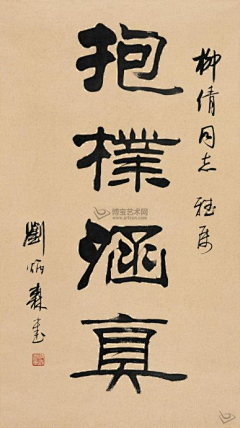 柳倩同志雅属
抱樸涵真
劉炳森書
博宝艺术网